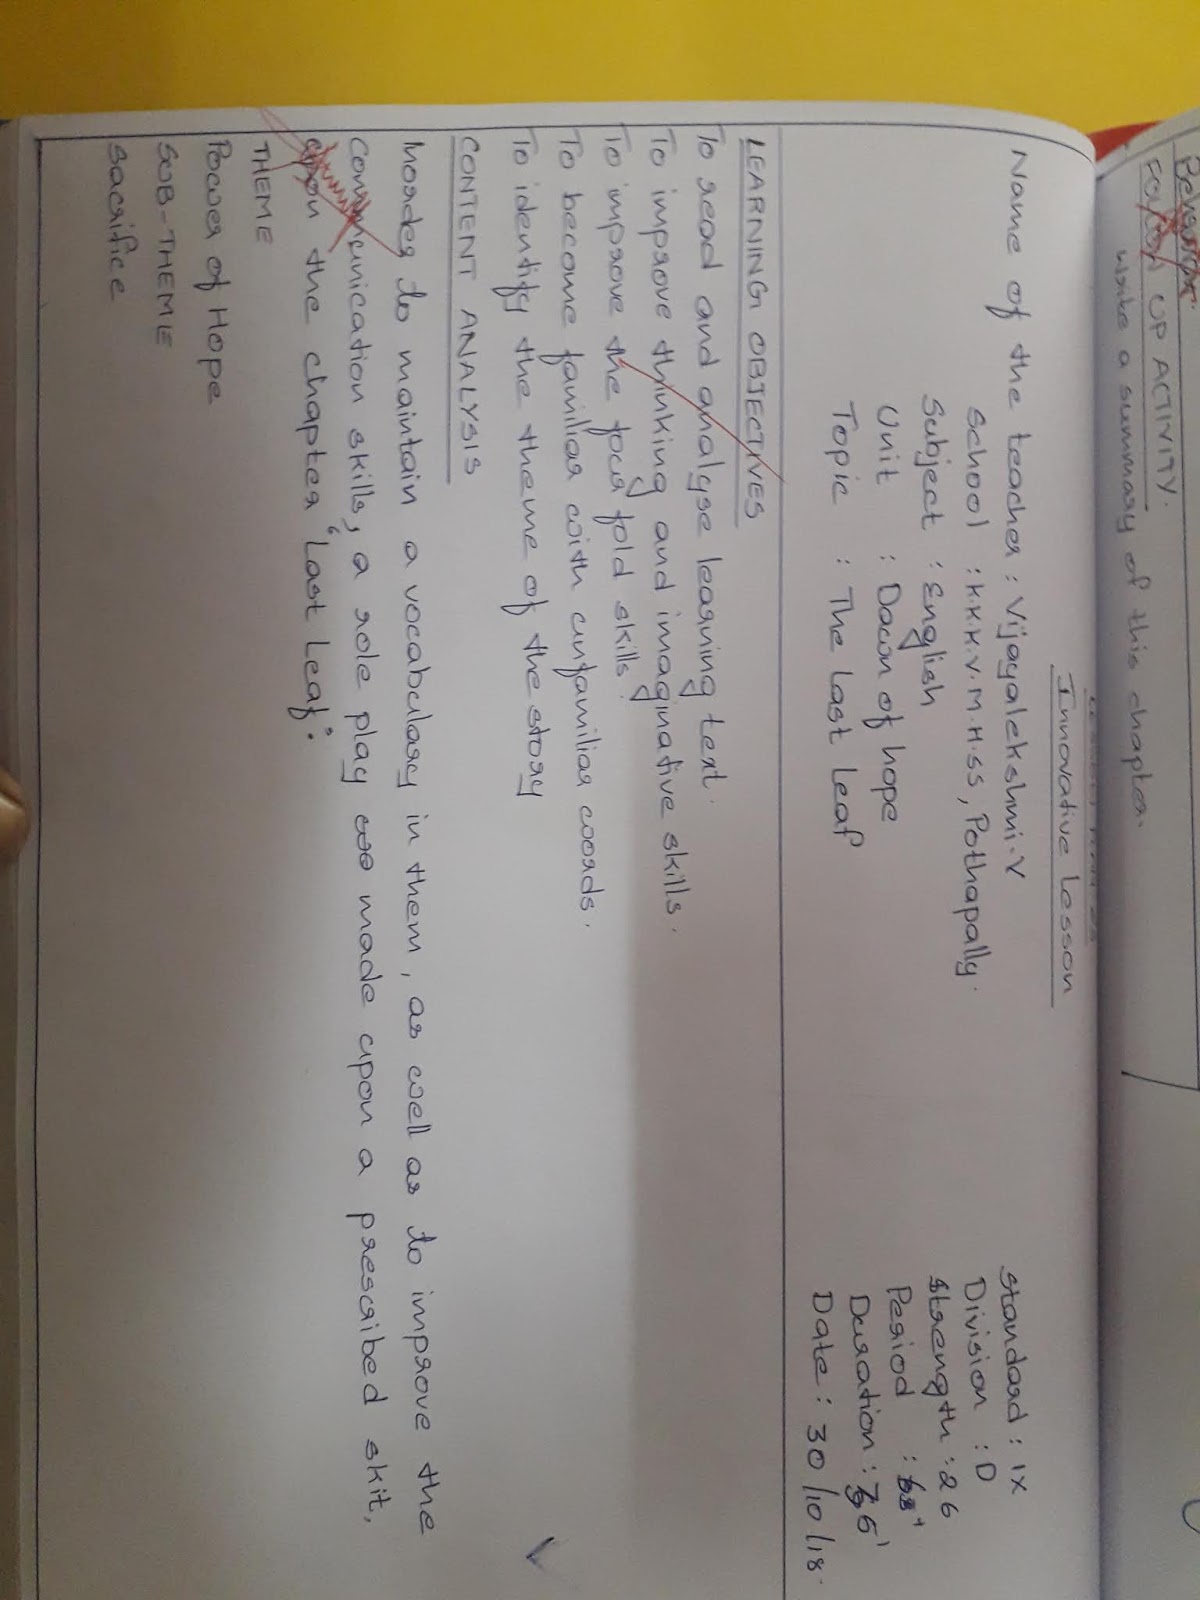 UP ACTIVITY.
Write a summary of this chapter.
Innovative Lesson
Name of the teacher : Vijayalekshmi.V
School : K.K.K.V.M.H.SS, Pothapally.
Subject : English
Unit : Dawn of hope
Topic : The Last Leaf
Standard : IX
Division : D
Strength : 26
Period :
Duration :
Date : 30/10/18.
LEARNING OBJECTIVES
To read and analyse learning text.
To improve thinking and imaginative skills.
To improve the four fold skills.
To become familiar with unfamiliar words.
To identify the theme of the story
CONTENT ANALYSIS
Inorder to maintain a vocabulary in them, as well as to improve the
Communication skills, a role play made upon a prescribed skit,
the chapter "Last Leaf".
THEME
Power of Hope
SUB-THEME
Sacrifice